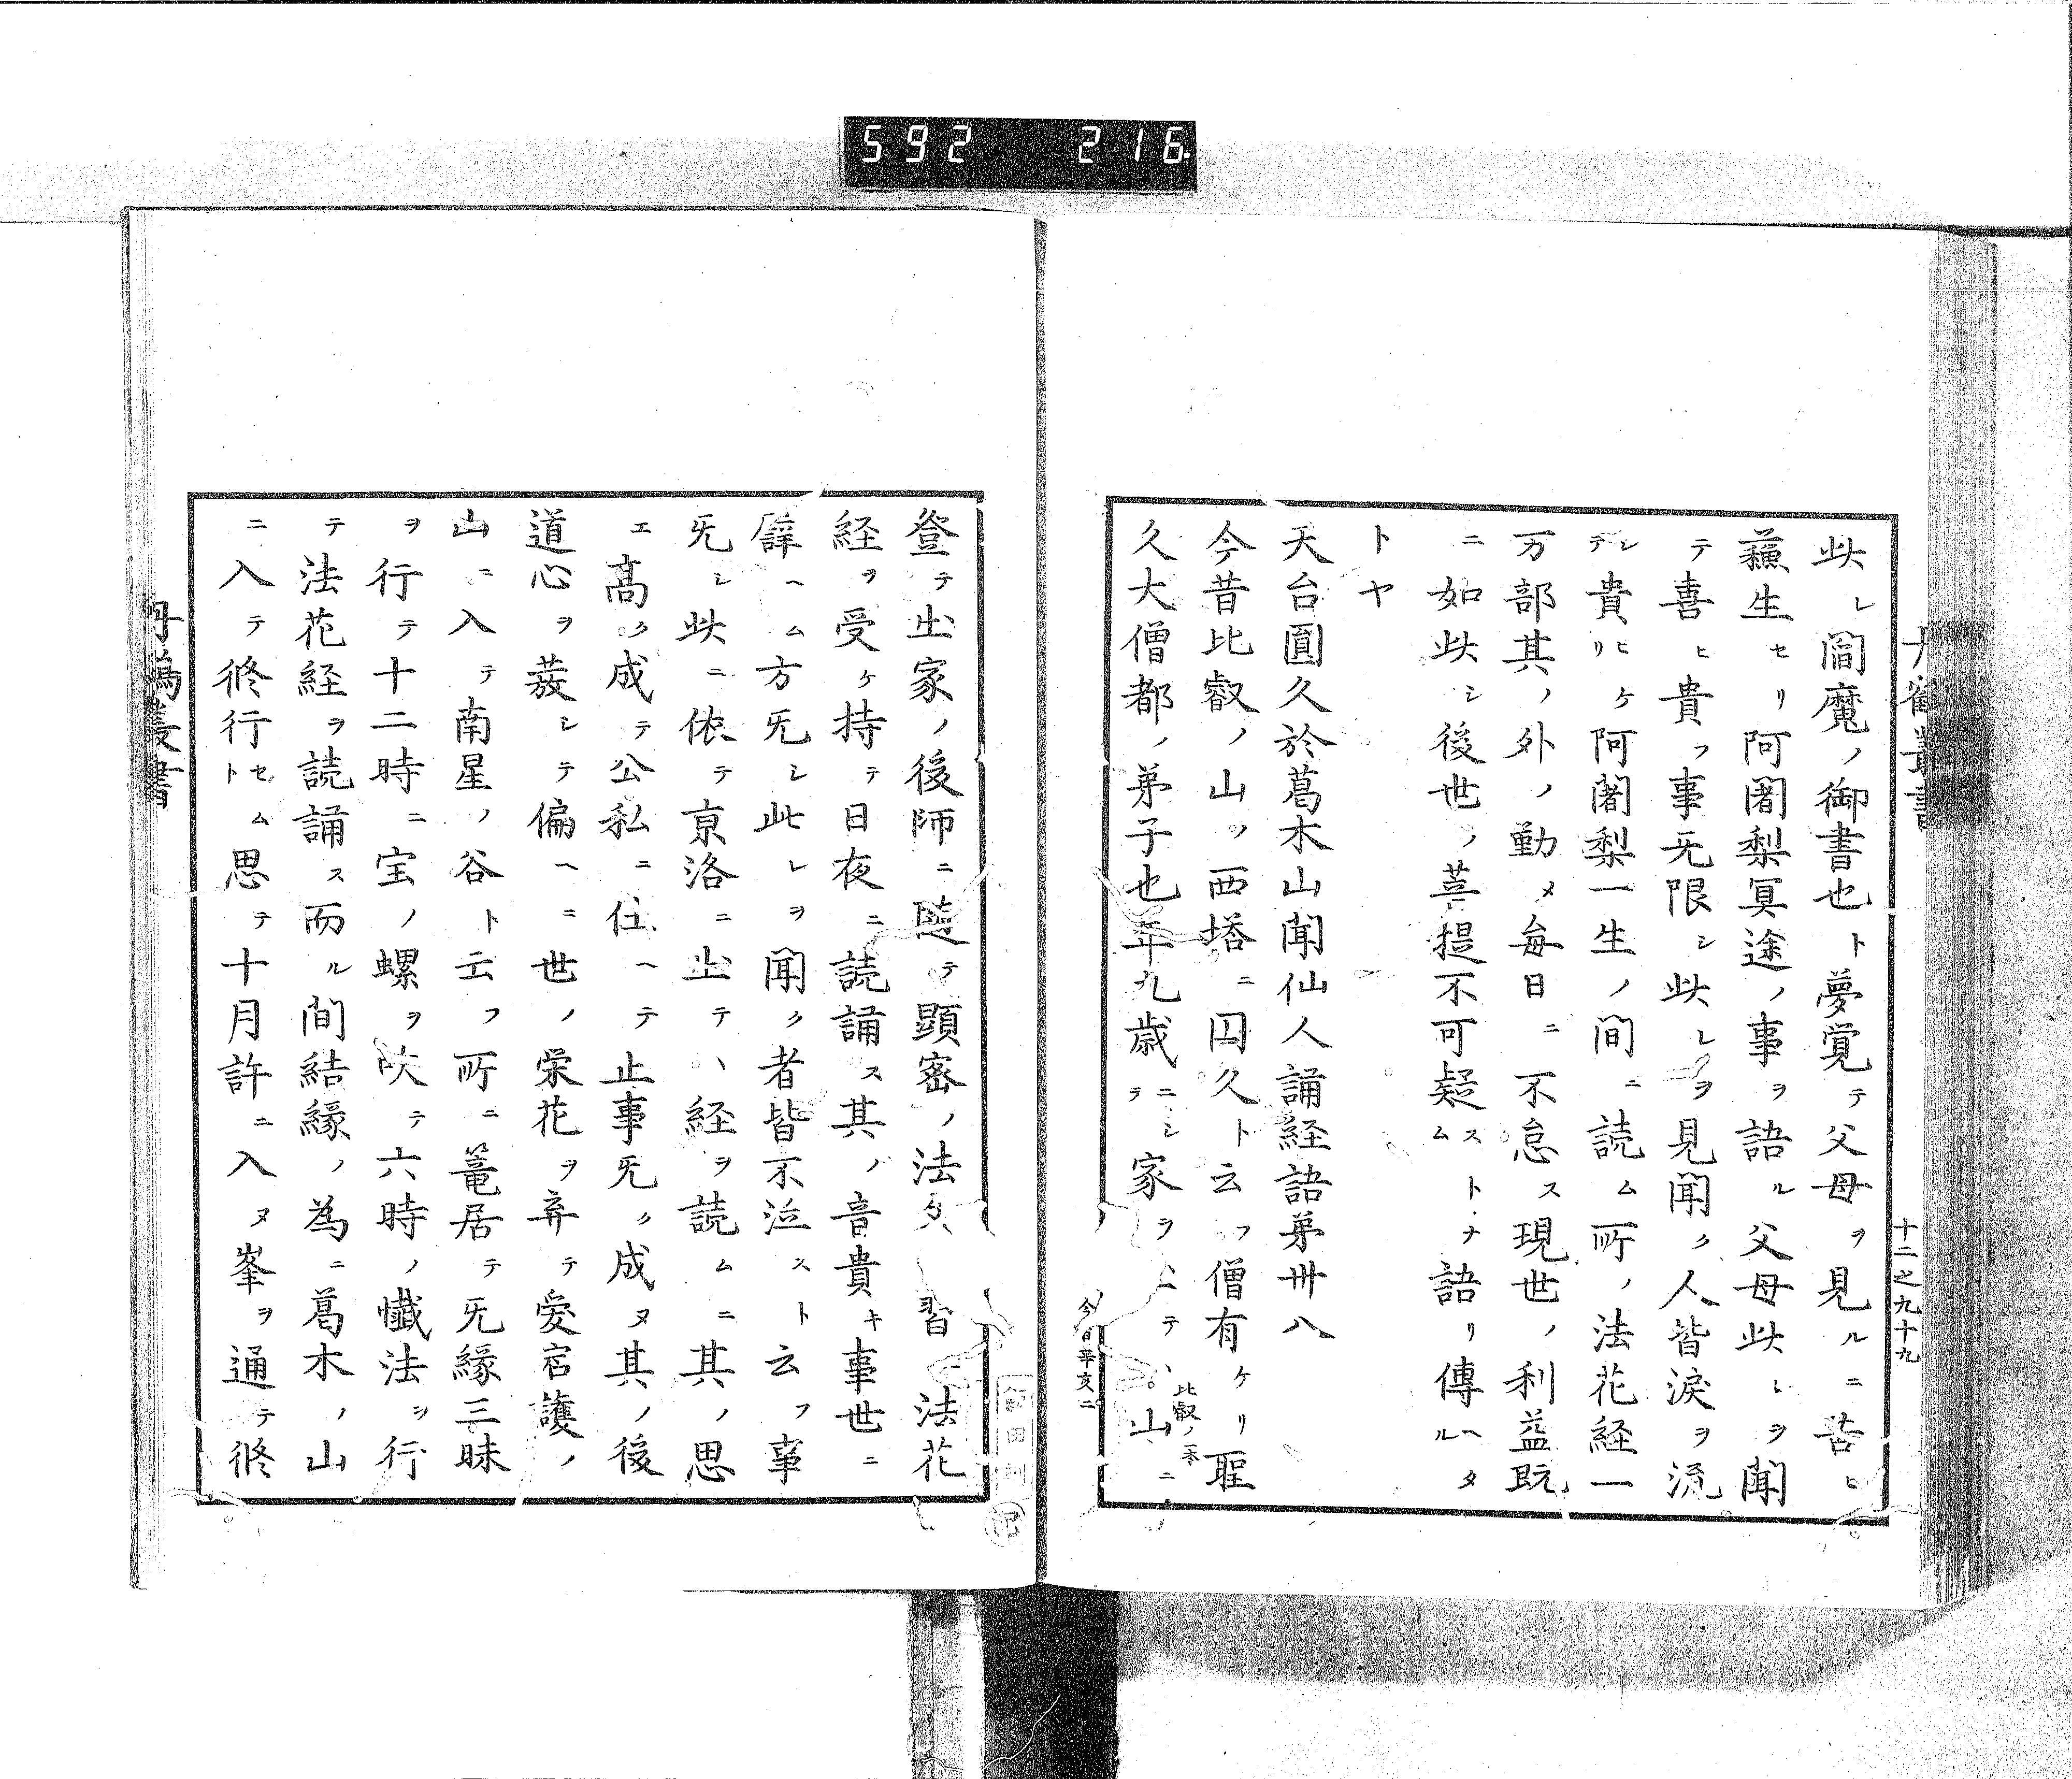 592 216
十二之九十九
此レ閻魔ノ御書也ト夢覚テ父母ヲ見ルニ苦ヒ
蘓生セリ阿闍梨冥途ノ事ヲ語ル父母此レヲ聞
テ喜ヒ貴フ事旡限シ此レヲ見聞ク人皆涙ヲ流
シテ貴ヒケリ阿闍梨一生ノ間ニ読ム所ノ法花経一
万部其ノ外ノ勤メ毎日ニ不怠ス現世ノ利益既
ニ如此シ後世ノ菩提不可疑ストナム語リ傳ヘタル
トヤ
天台圓久於葛木山聞仙人誦経語第卅八
今昔比叡ノ山ノ西塔ニ囚久ト云フ僧有ケリ聖
久大僧都ノ弟子也年九歳ニシテ家ヲ ニテ山ニ
比叡ノ
登テ出家ノ後師ニ随テ顕密ノ法文 習 法花
経ヲ受ケ持テ日夜ニ読誦ス其ノ音貴キ事世ニ
辟ヘム方旡シ此レヲ聞ク者皆不泣スト云フ事
旡シ此ニ依テ京洛ニ出テヽ経ヲ読ムニ其ノ思
エ高ク成テ公私ニ仕ヘテ止事旡ク成ヌ其ノ後
道心ヲ發シテ偏ヘニ世ノ栄花ヲ弃テ愛宕護ノ
山ニ入テ南星ノ谷ト云フ所ニ篭居テ旡緣三昧
ヲ行テ十二時ニ宝ノ螺ヲ吹テ六時ノ懺法ヲ行
テ法花経ヲ読誦ス而ル間結緣ノ為ニ葛木ノ山
ニ入テ修行セムト思テ十月許ニ入ヌ峯ヲ通テ修
丹鶴叢書